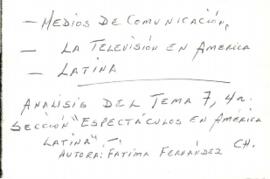 — MEDIOS DE COMUNICACIÓN,
— LA TELEVISIÓN EN AMÉRICA
— LATINA
ANÁLISIS DEL TEMA 7, 4a.
SECCIÓN "ESPECTÁCULOS EN AMÉRICA
LATINA".
AUTORA: FATIMA FERNÁNDEZ CH.